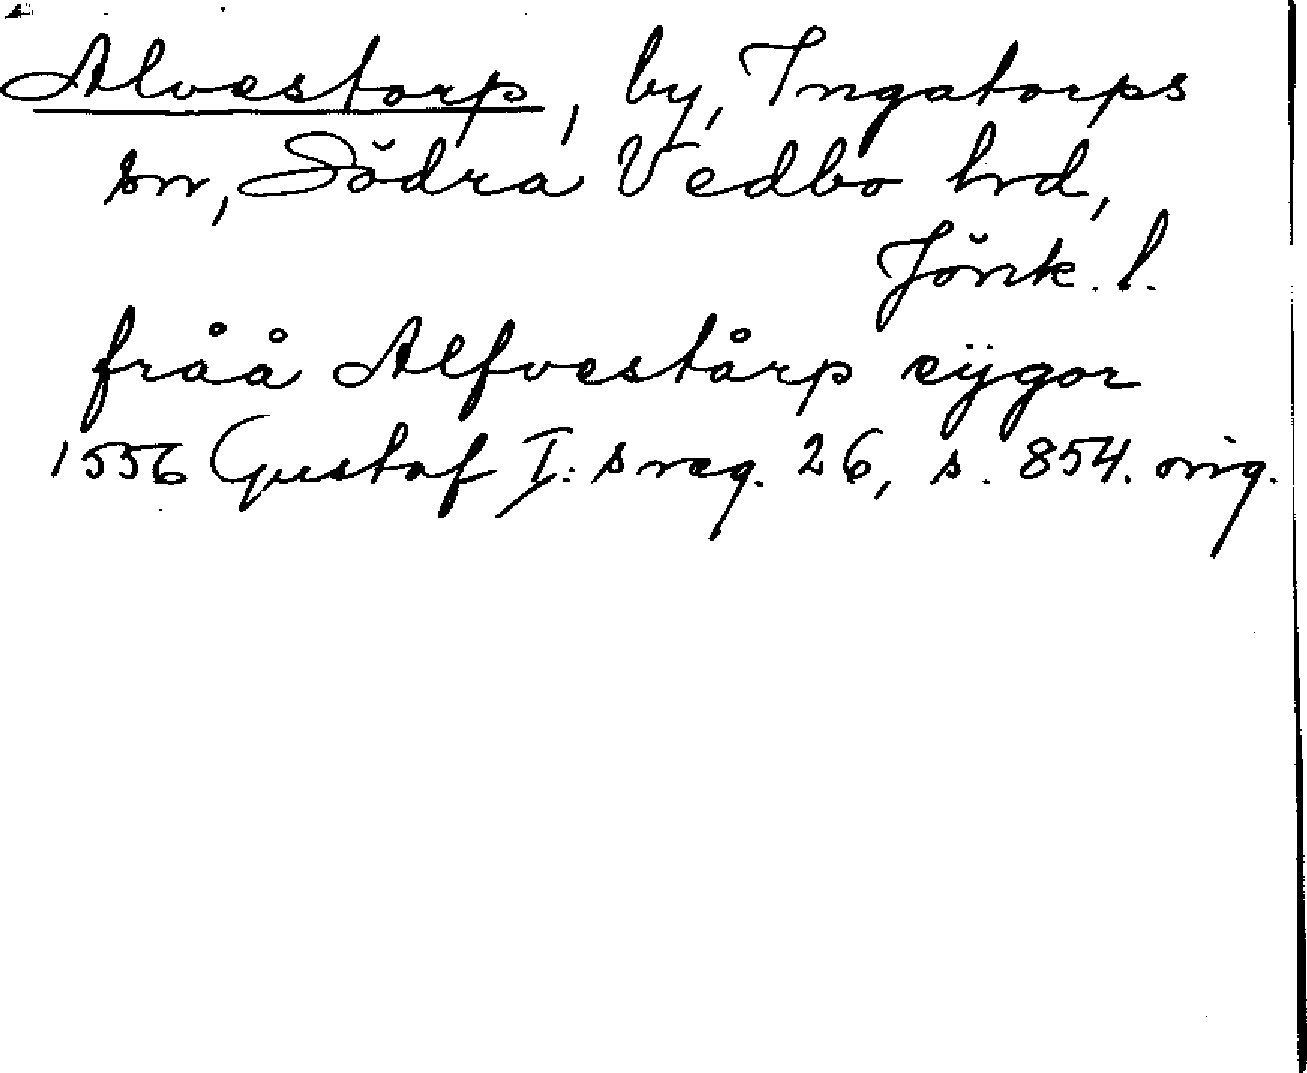 Alvestorp, by, Ingatorps
sn, Södra Vedbo hrd,
Jönk. l.
fråå Alfvestårp eÿgor
1556 Gustaf I:s reg. 26, s. 854. orig.